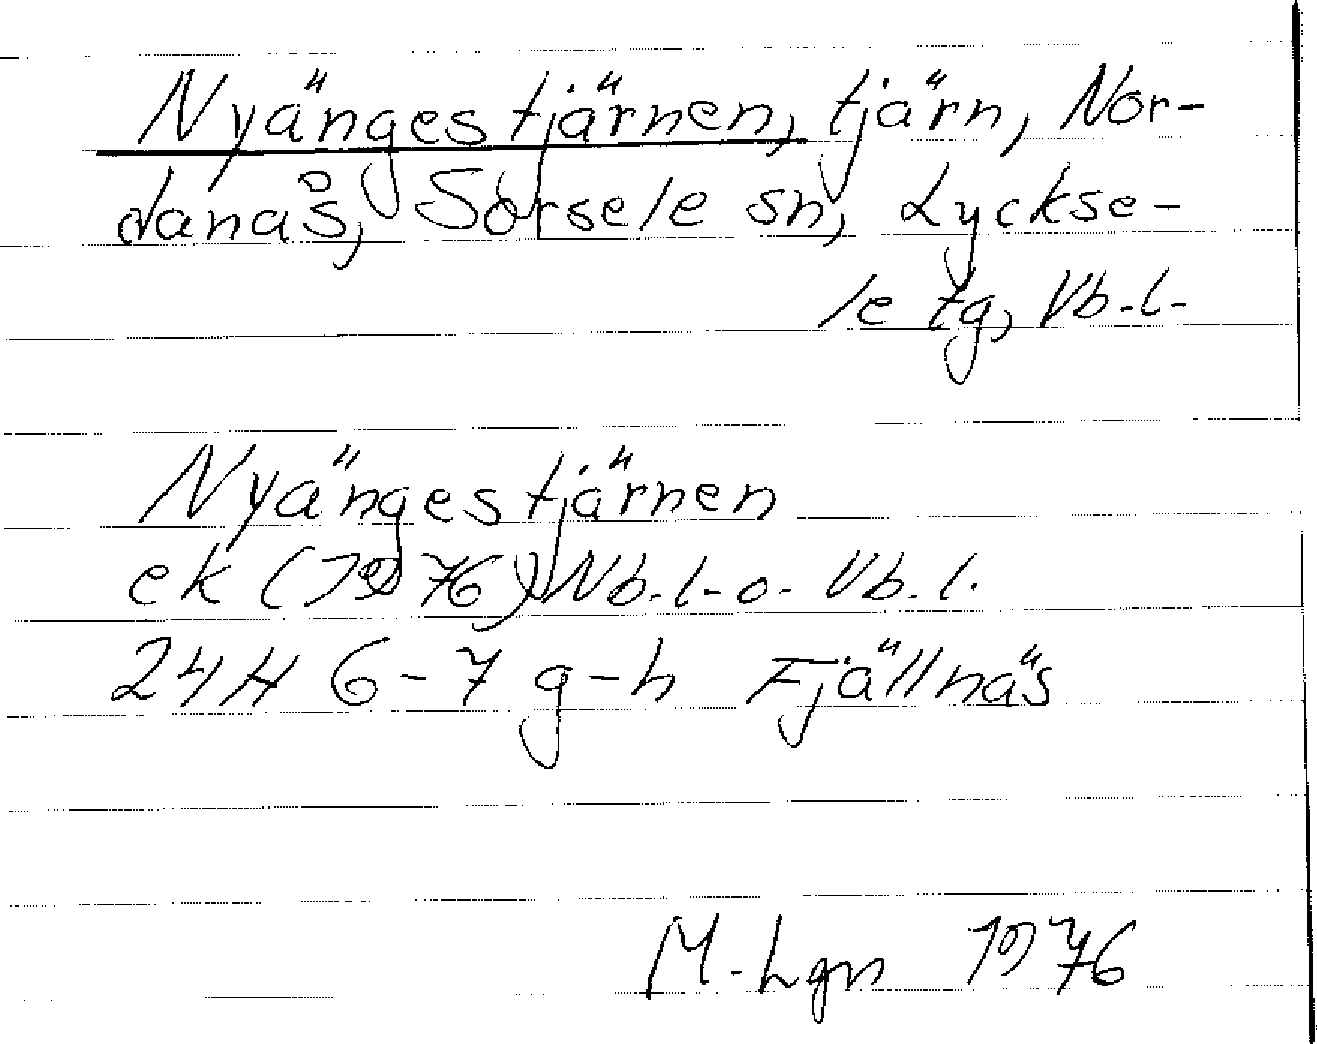 Nyängestjärnen, tjärn, Nor-
danås, Sorsele sn, Lyckse-
le tg, Vb.l.
Nyängestjärnen
ek (1976) Nb.l. o. Vb.l.
24H 6-7 g-h Fjällnäs
M. Lgn 1976